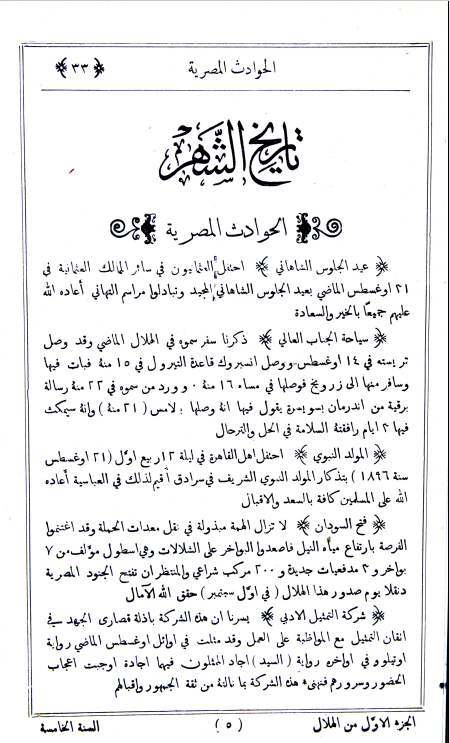 الحوادث المصرية ٣٣
تاريخ الشهر
الحوادث المصرية
عيد الجلوس الشاهاني احتفل العثمانيون في سائر الممالك العثمانية في
٢١ اوغسطس الماضي بعيد الجلوس الشاهاني المجيد وتبادلوا مراسم التهاني أعاده الله
عليهم جميعًا بالخير والسعادة
سياحة الجناب العالي ذكرنا سفر سموه في الهلال الماضي وقد وصل
تريسته في ١٤ اوغسطس ووصل انسبروك قاعدة التيرول في ١٥ منهُ فبات فيها
وسافر منها الى زرويخ فوصلها في مساء ١٦ منهُ ٠ وورد من سموه في ٢٢ منهُ رسالة
برقية من اندرمان بسويسرة يقول فيها انهُ وصلها بلامس (٢١ منهُ) وانهُ سيمكث
فيها ٢ ايام رافقتهُ السلامة في الحل والترحال
المولد النبوي احتفل اهل القاهرة في ليلة ١٢ ربيع اوّل (٢١ اوغسطس
سنة ١٨٩٦) بتذكار المولد النبوي الشريف في سرادق أقيم لذلك في العباسية أعاده
الله على المسلمين كافة بالسعد والاقبال
فتح السودان لا تزال الهمة مبذولة في نقل معدات الحملة وقد اغتنموا
الفرصة بارتفاع مياه النيل فاصعدوا البواخر على الشلالات وهي اسطول مؤلف من ٧
بواخر و ٢ مدفعيات جديدة و ٢٠٠ مركب شراعي والمنتظر ان تفتح الجنود المصرية
دنقلا يوم صدور هذا الهلال (في اوّل سبتمبر) حقق الله الآمال
شركة التمثيل الادبي يسرنا ان هذه الشركة باذلة قصارى الجهد في
اتقان التمثيل مع المواظبة على العمل وقد مثلت في اوائل اوغسطس الماضي رواية
اوتيلو و في اواخره رواية (السيد) اجاد الممثلون فيها اجادة اوجبت اعجاب
الحضور وسرورهم فنهنئ هذه الشركة بما نالتهُ من ثقة الجمهور واقبالهم
الجزء الاوّل من الهلال (٥) السنة الخامسة